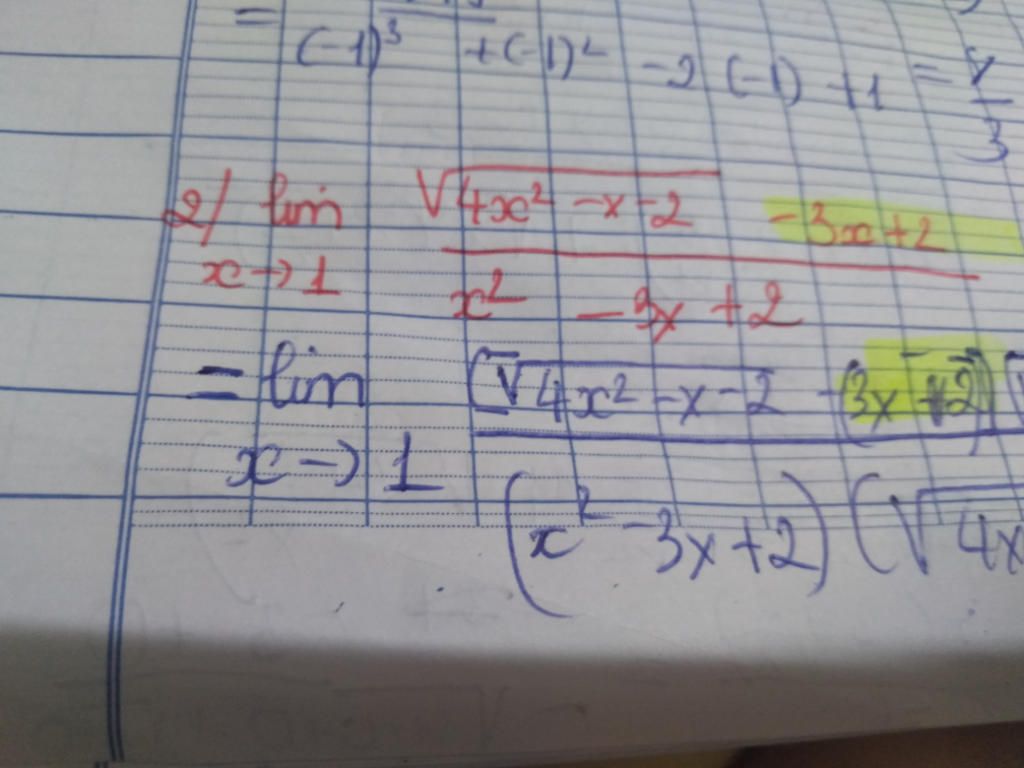 = (-1)³ + (-1)² - 2 (-1) + 1 = 3
2/ lim √4x² - x - 2 - 3x + 2
x → 1 x² - 3x + 2
= lim (√4x² - x - 2 - (3x - 2)) (√
x → 1 (x² - 3x + 2) (√4x